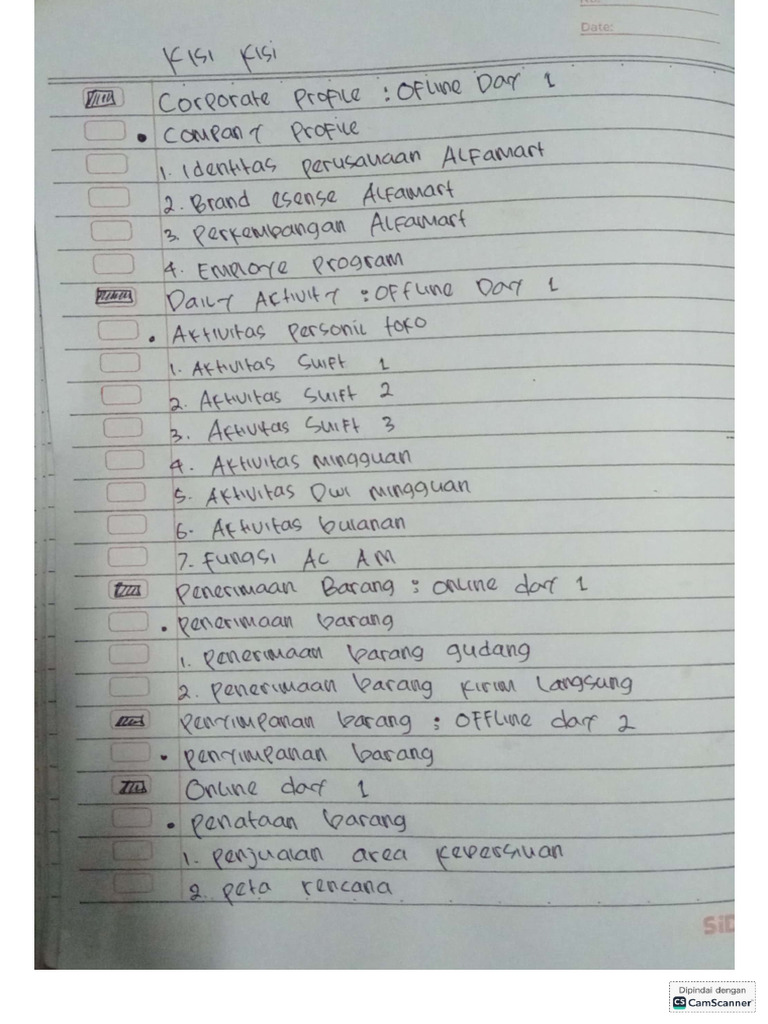 No:
Date:
KISI KISI
Corporate Profile : OFLine Day 1
• Company Profile
1. Identitas perusahaan ALFamart
2. Brand esense ALFamart
3. Perkembangan ALFamart
4. Employe program
Daily Aktivity : OFFLine Day 1
• Aktivitas personil toko
1. Aktivitas Shift 1
2. Aktivitas Shift 2
3. Aktivitas Shift 3
4. Aktivitas mingguan
5. Aktivitas Dwi mingguan
6. Aktivitas bulanan
7. Fungsi AC AM
Penerimaan Barang : Online day 1
• Penerimaan barang
1. Penerimaan barang gudang
2. Penerimaan barang kirim Langsung
Penyimpanan barang : OFFline day 2
• Penyimpanan barang
Online day 1
• Penataan barang
1. Penjualan area kebersihan
2. Peta rencana
SiD
Dipindai dengan
CS CamScanner